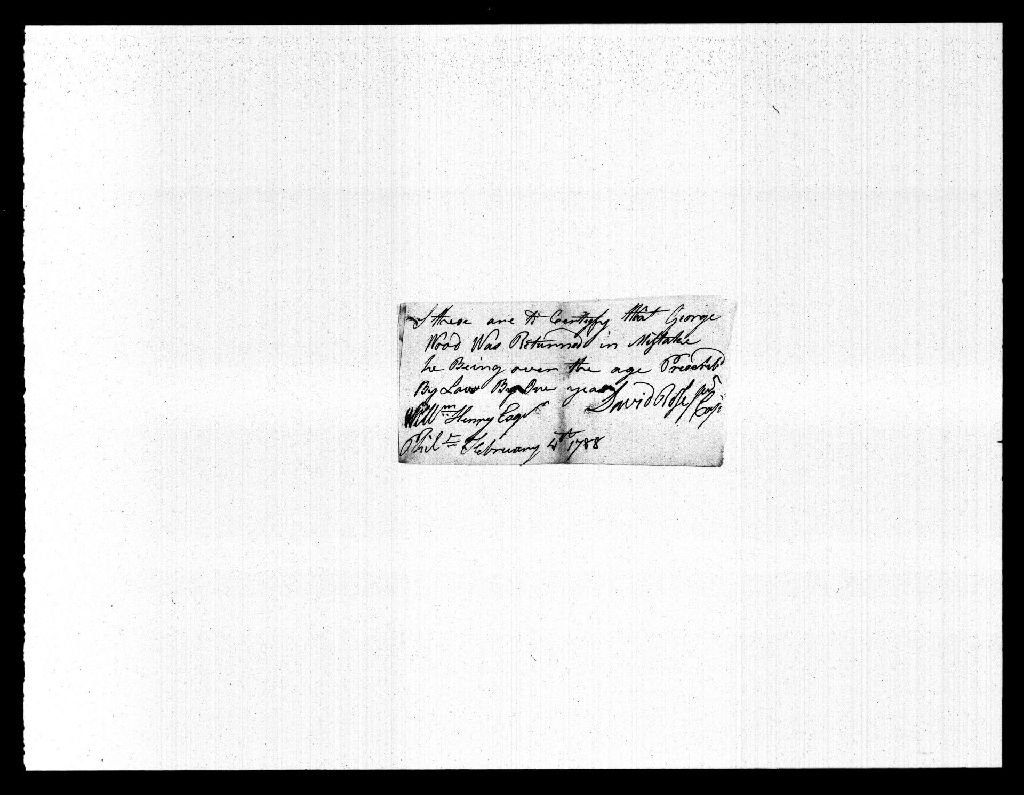 these are to Certify that George
Wood Was Returned in Mistake
he Being over the age Precribd
By Law By One year
David Rose
Willm Henry Esqr
Phila February 4th 1788